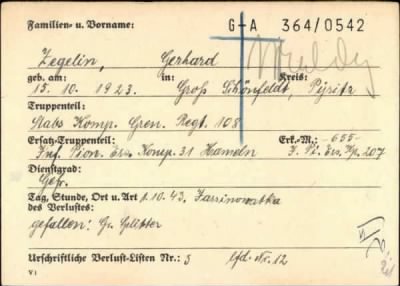 Familien- u. Vorname: G-A 364/0542
Zegelin, Gerhard
geb. am: in: Kreis:
15. 10. 1923. Groß Schönfeldt, Pyritz
Truppenteil:
Stabs Komp. Gren. Regt. 108
Ersatz-Truppenteil: Erk.-M.: -655-
Inf. Pion. Ers. Komp. 31 Hameln J. Pi. Ers. Kp. 207
Dienstgrad:
Gefr.
Tag, Stunde, Ort u. Art 1.10.43.
des Verlustes:
gefallen: Gr. Splitter
Urschriftliche Verlust-Listen Nr.: 5 lfd. Nr. 12
V 1